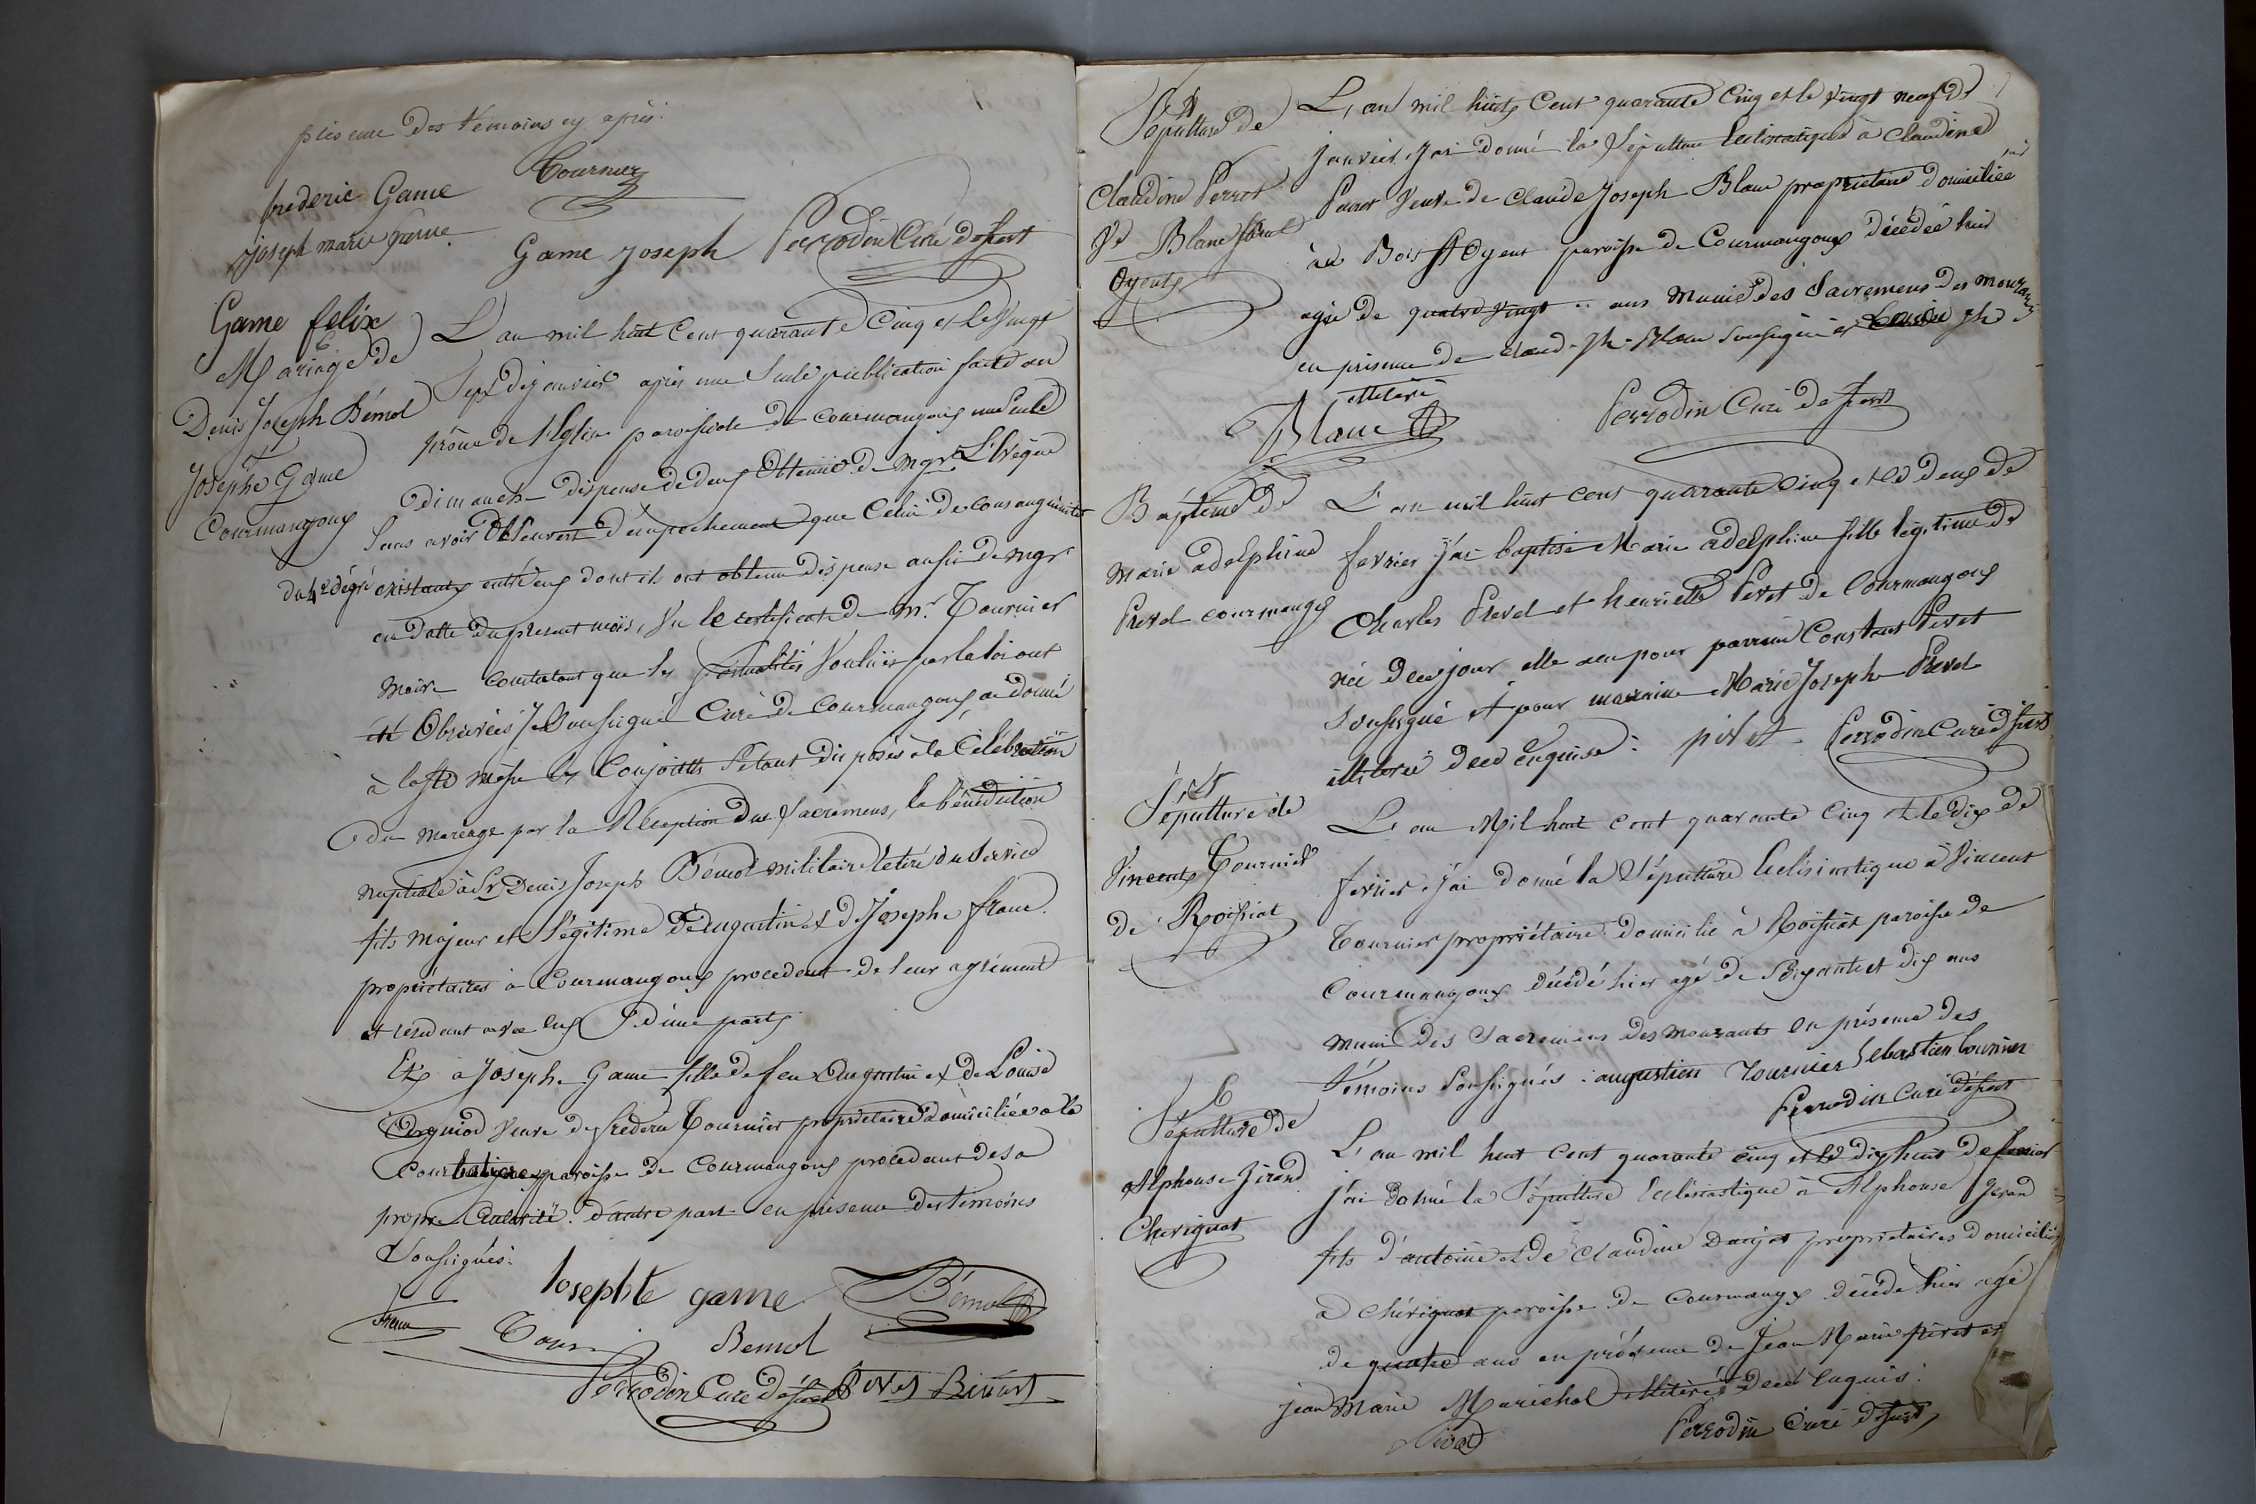 présence des témoins cy après
Tournier
frederic Game
joseph marie game
Game joseph Perrodin Curé desservt
Game felix
Mariage de
Denis Joseph Bémol
Josephe Game
Courmangoux
L'an mil huit Cent quarante Cinq et le Vingt
Sept de janvier après une Seule publication faite au
prône de l'Eglise paroissiale de courmangoux un Seul
dimanche dispense de deux Obtenue de Mgr L'Evêque
Sans avoir découvert d'empechement que Celui de consanguinité
du 4e dégré existant entr'eux dont ils ont obtenu dispense aussi de Mgr
en datte du present mois, Vu le certificat de Mr. Tournier
Maire constatant que les formalités Voulues par la loi ont
été Observées Je Soussigné Curé de Courmangoux ai donné
à la Ste Messe les Conjoints S'étant disposés à la Célébration
du mariage par la Réception des Sacremens, la bénédiction
nuptiale à Sr Denis Joseph Bémol militaire Retiré du Service
fils majeur et légitime de augustin et de Josephe franc
propriétaires à Courmangoux procedant de leur agrément
et résidant avec eux D'une part
Et à Josephe Game fille de feu Augustin et de Louise
Veuve de frederic Tournier propriétaire domiciliée à la
paroisse de Courmangoux procedant de sa
propre Autorité. d'autre part en présence des témoins
Soussignés.
Josephte game Bémol
franc Tour
Bemol
Perrodin Curé desservt Pivet
4
Sépulture de
Claudine Perrot
Ve Blanc
Oyent
L'an mil huit Cent quarante Cinq et le Vingt neuf de
janvier j'ai donné la Sépulture Ecclésiastique à Claudine
Perrot Veuve de Claude Joseph Blanc propriétaire domiciliée
à Bois St Oyent paroisse de Courmangoux décédée hier
agée de quatre Vingt ans Munie des Sacremens des mourans
en présence de claud-Jh-Blanc Soussigné et Jh
illitéré
Blanc Perrodin Curé desservt
Baptême de
Marie adelphine
Prevel courmangx
L'an mil huit cent quarante Cinq et le deux de
fevrier j'ai baptisé Marie adelphine fille légitime de
Charles Prevel et henriette Pivet de Courmangoux
née de ce jour elle a eu pour parrain Constant Pivet
Soussigné et pour marraine Marie Joseph Prevel
illitérée de ce Enquise. pivet Perrodin Curé desservt
5
Sépulture de
Vincent Tournier
de Roissiat
L'an Mil huit cent quarante Cinq et le dix de
fevrier j'ai donné la Sépulture Ecclésiastique à Vincent
Tournier propriétaire domicilié à Roissiat paroisse de
Courmangoux décédé hier agé de Soixante et dix ans
Muni des Sacremens des mourants en présence des
témoins Soussignés. augustien Tournier Sebastien tournier
Perrodin Curé desservt
6
Sépulture de
Alphonse Jirand
Chevignat
L'an mil huit Cent quarante cinq et le dix huit de fevrier
j'ai donné la Sépulture Ecclésiastique à Alphonse
fils d'antoine et de Claudine propriétaires domiciliés
à Chévignat paroisse de courmangx décédé hier agé
de quatre ans en présence de Jean Marie pivet et
jean Marie Maréchal illitérés de ce Enquis.
Perrodin Curé desservt